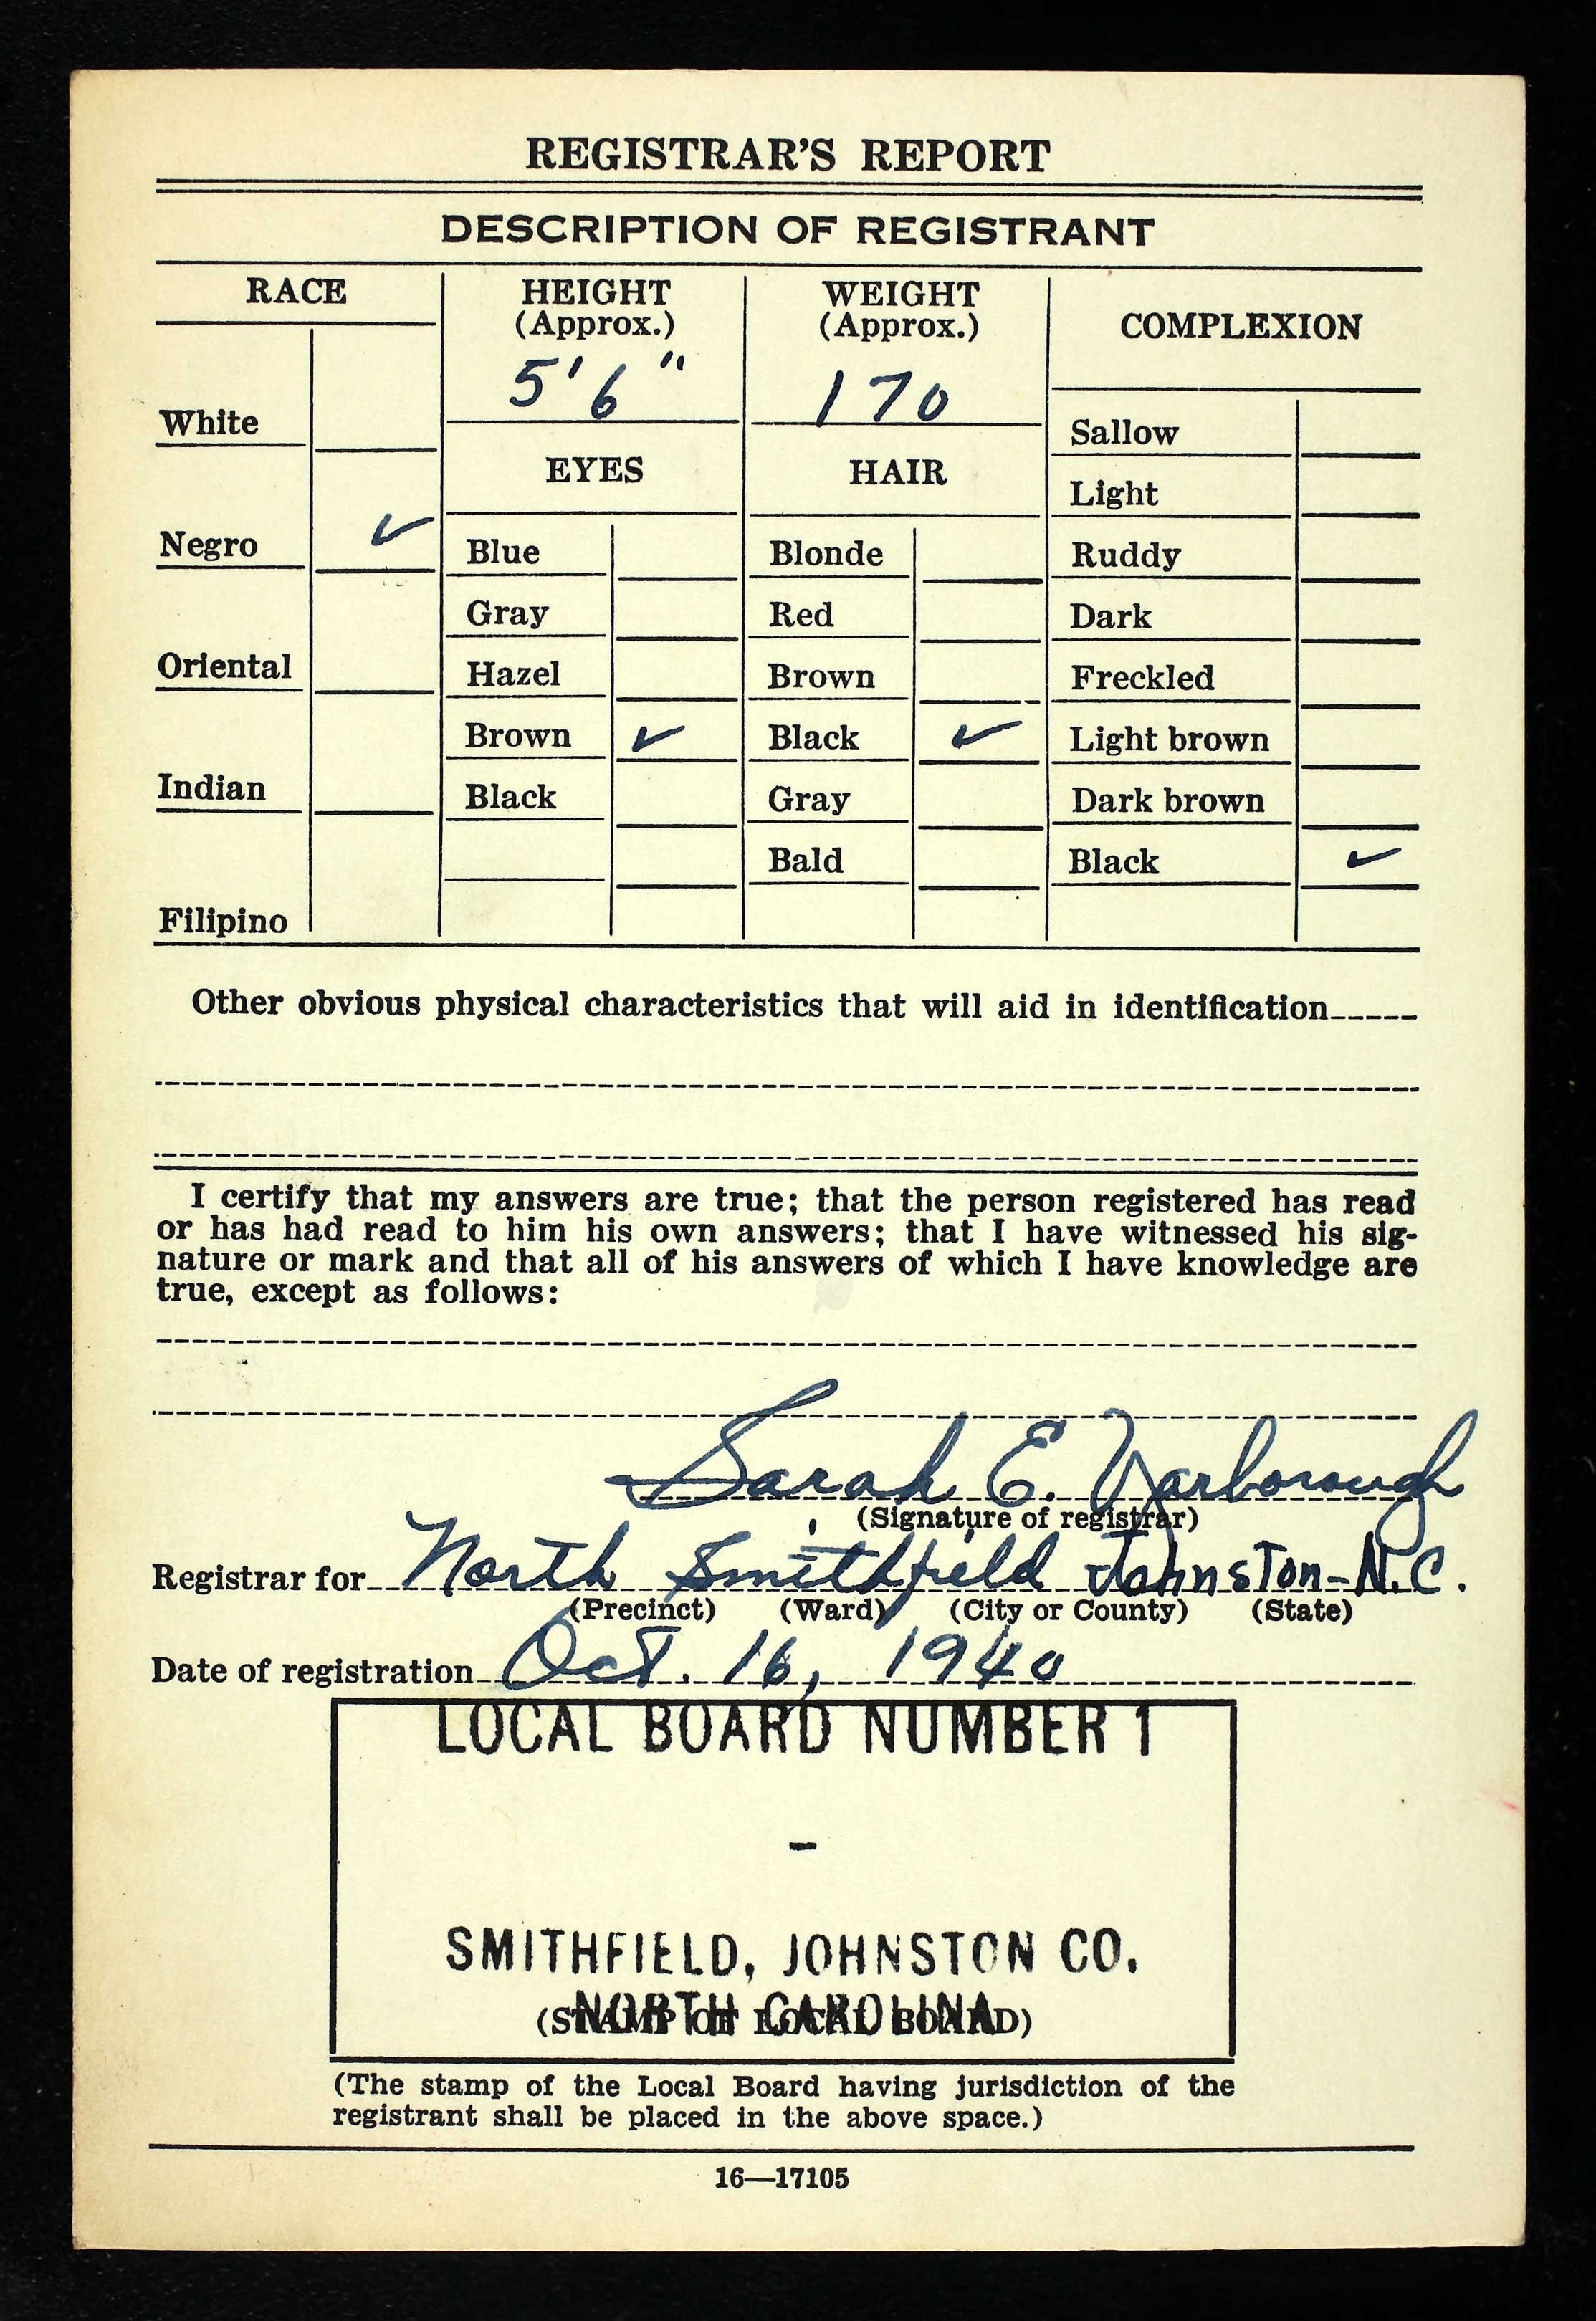 REGISTRAR'S REPORT
DESCRIPTION OF REGISTRANT
RACE
HEIGHT
(Approx.)
WEIGHT
(Approx.)
COMPLEXION
5' 6"
170
White
Sallow
EYES
HAIR
Light
Negro ✓
Blue
Blonde
Ruddy
Gray
Red
Dark
Oriental
Hazel
Brown
Freckled
Brown ✓
Black ✓
Light brown
Indian
Black
Gray
Dark brown
Bald
Black ✓
Filipino
Other obvious physical characteristics that will aid in identification
I certify that my answers are true; that the person registered has read
or has had read to him his own answers; that I have witnessed his sig-
nature or mark and that all of his answers of which I have knowledge are
true, except as follows:
Sarah E. Yarborough
(Signature of registrar)
Registrar for North Smithfield Johnston-N.C.
(Precinct) (Ward) (City or County) (State)
Date of registration Oct. 16, 1940
LOCAL BOARD NUMBER 1
-
SMITHFIELD, JOHNSTON CO.
NORTH CAROLINA
(STAMP OF LOCAL BOARD)
(The stamp of the Local Board having jurisdiction of the
registrant shall be placed in the above space.)
16—17105